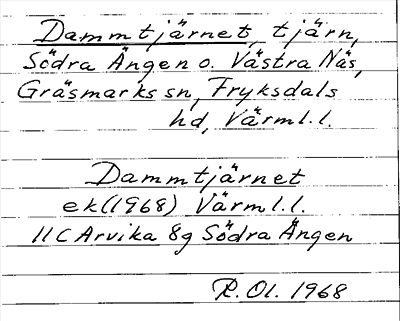 Dammtjärnet, tjärn,
Södra Ängen o. Västra Näs,
Gräsmarks sn, Fryksdals
hd, Värml.l.
Dammtjärnet
ek(1968) Värml.l.
11C Arvika 8g Södra Ängen
R.Ol. 1968